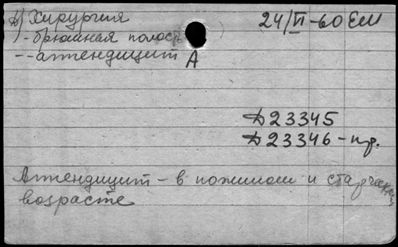 1) Хирургия 24/VI-60 ЕМ
)-брюшная полость
--аппендицит А
Д23345
Д23346-пр.
Аппендицит - в пожилом и старческом
возрасте